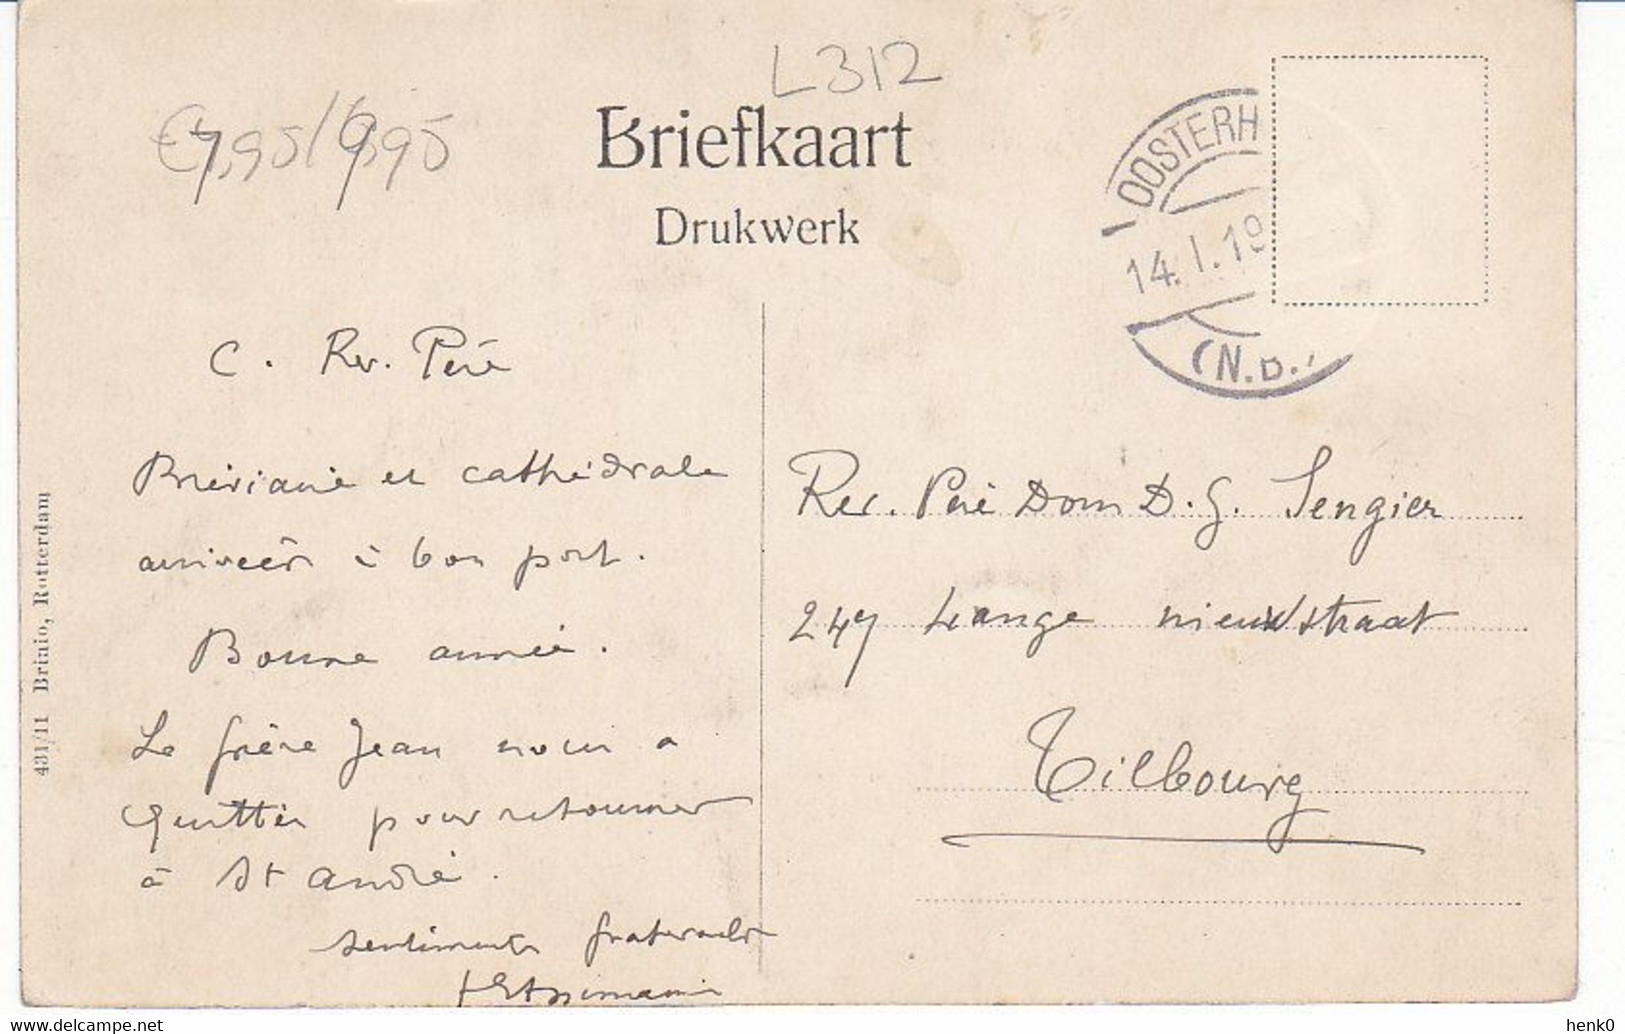 L312
€7,95/6,95
Briefkaart
Drukwerk
OOSTERH
14.I.19
(N.B.)
C. Rev. Père
Bréviaire et cathédrale
arrivées à bon port.
Bonne année.
Le frère Jean nous a
quittés pour retourner
à St André.
sentiments fraternels
Rev. Père Dom D. G. Sengier
247 Lange nieuwstraat
Tilbourg
431/11 Briaio, Rotterdam
henk0
www.delcampe.net